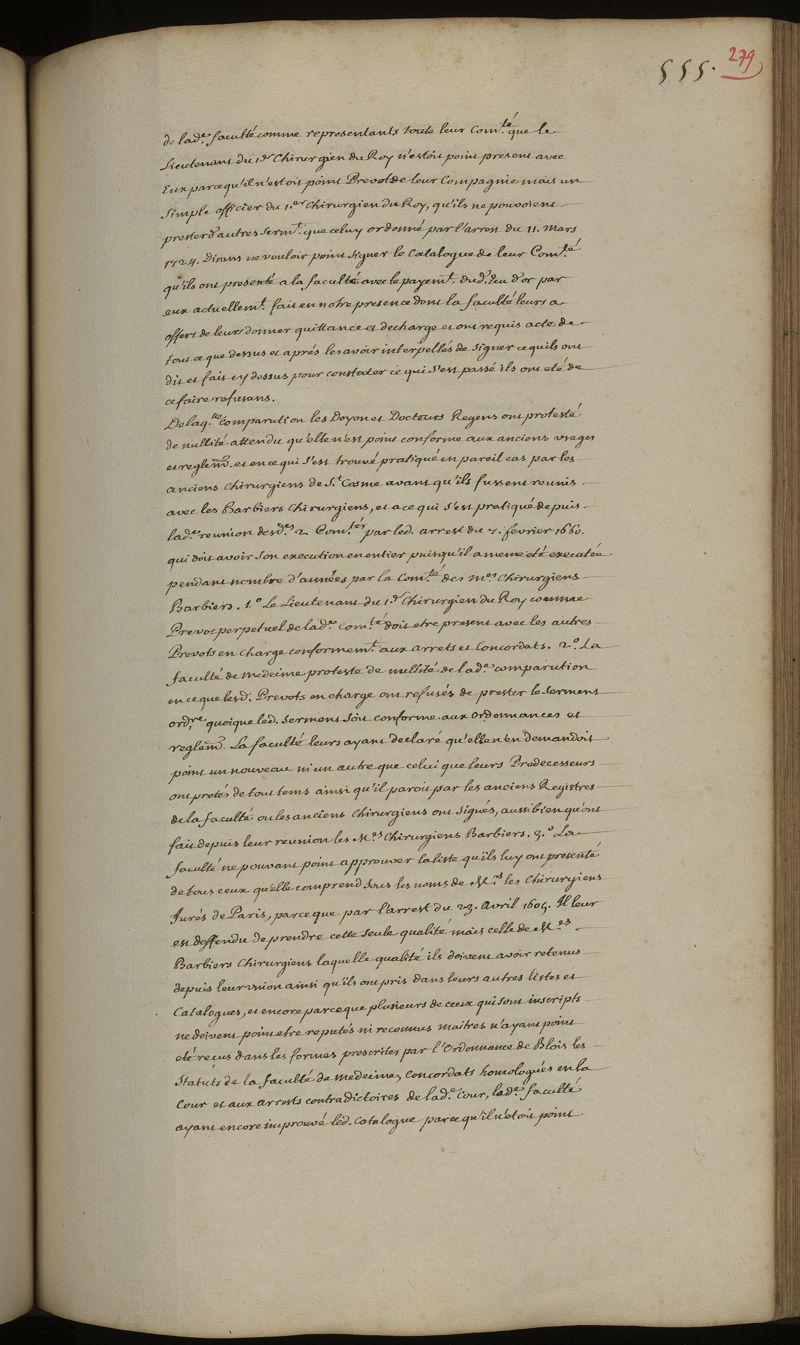 555. 279
de lad.e faculté comme representants toute leur Com.té que le
Lieutenant du 1.er Chirurgien du Roy n'estoit point present avec
Eux parce qu'il n'estoit point Prevot de leur Compagnie mais un
simple officier du 1.er Chirurgien du Roy, qu'ils ne pouvoient
prester d'autres serm.t que celuy ordonné par l'arrest du 11. Mars
1724. Disans ne vouloir point signer le Catalogue de leur Com.té
qu'ils ont presenté a la faculté avec le payem.t dud. Ecu d'or par
eux actuellem.t fait en notre presence dont la faculté leurs a
offert de leurs donner quittance et decharge et ont requis acte de
tout ce que dessus et aprés les avoir interpellés de signer ce quils ont
dit et fait cy dessus pour constater ce qui s'est passé ils ont eté de
ce faire refusans.
De laq.lle comparution les Doyen et Docteurs Regens ont protesté
de nullité attendu qu'elle n'est point conforme aux anciens usages
et reglem.s et en ce qui s'est trouvé pratiqué en pareil cas par les
anciens Chirurgiens de S.t Cosme avant qu'ils fussent reunis
avec les Barbiers Chirurgiens, et a ce qui s'est pratiqué depuis
lad.e reunion desd.es 2 Com.tés par led. arrest du 7. fevrier 1660.
qui doit avoir son execution en entier puisqu'il a meme eté executée
pendant nombre d'années par la Com.té des M.es Chirurgiens
Barbiers. 1.o Le Lieutenant du 1.er Chirurgien du Roy comme
Prevot perpetuel de lad.e Com.té doit etre present avec les autres
Prevots en charge conformem.t aux arrets et Concordats. 2.o La
faculté de Medecine proteste de nullité de lad.e comparution
en ce que lesd. Prevots en charge ont refusés de prester le serment
ord.re quoique led. serment soit conforme aux ordonnances et
reglem.s La faculté leurs ayant declaré qu'elle n'en demandoit
point un nouveau ni un autre que celui que leurs Predecesseurs
ont pretés de tout tems ainsi qu'il paroit par les anciens Registres
de la faculté ou les anciens Chirurgiens ont signés, aussi bien qu'ont
fait depuis leur reunion les M.es Chirurgiens Barbiers. 3.o La
faculté ne pouvant point approuver la liste qu'ils luy ont presenté
de tous ceux qu'elle comprend sous les noms de M.rs les Chirurgiens
Jurés de Paris, parce que par l'arrest du 23. Avril 1605. Il leur
est deffendu de prendre cette seule qualité mais celle de M.es
Barbiers Chirurgiens laquelle qualité ils doivent avoir retenus
depuis leur union ainsi qu'ils ont pris dans leurs autres listes et
Catalogues, et encore parceque plusieurs de ceux qui sont inscripts
ne doivent point etre reputés ni reconnus maitres n'ayant point
eté reçus dans les formes prescrites par l'Ordonnance de Blois les
Statuts de la faculté de Medecine, Concordats homologués en la
Cour et aux arrests contradictoires de lad.e Cour, lad.e faculté
ayant encore improuvé led. Catalogue parce qu'il n'étoit point